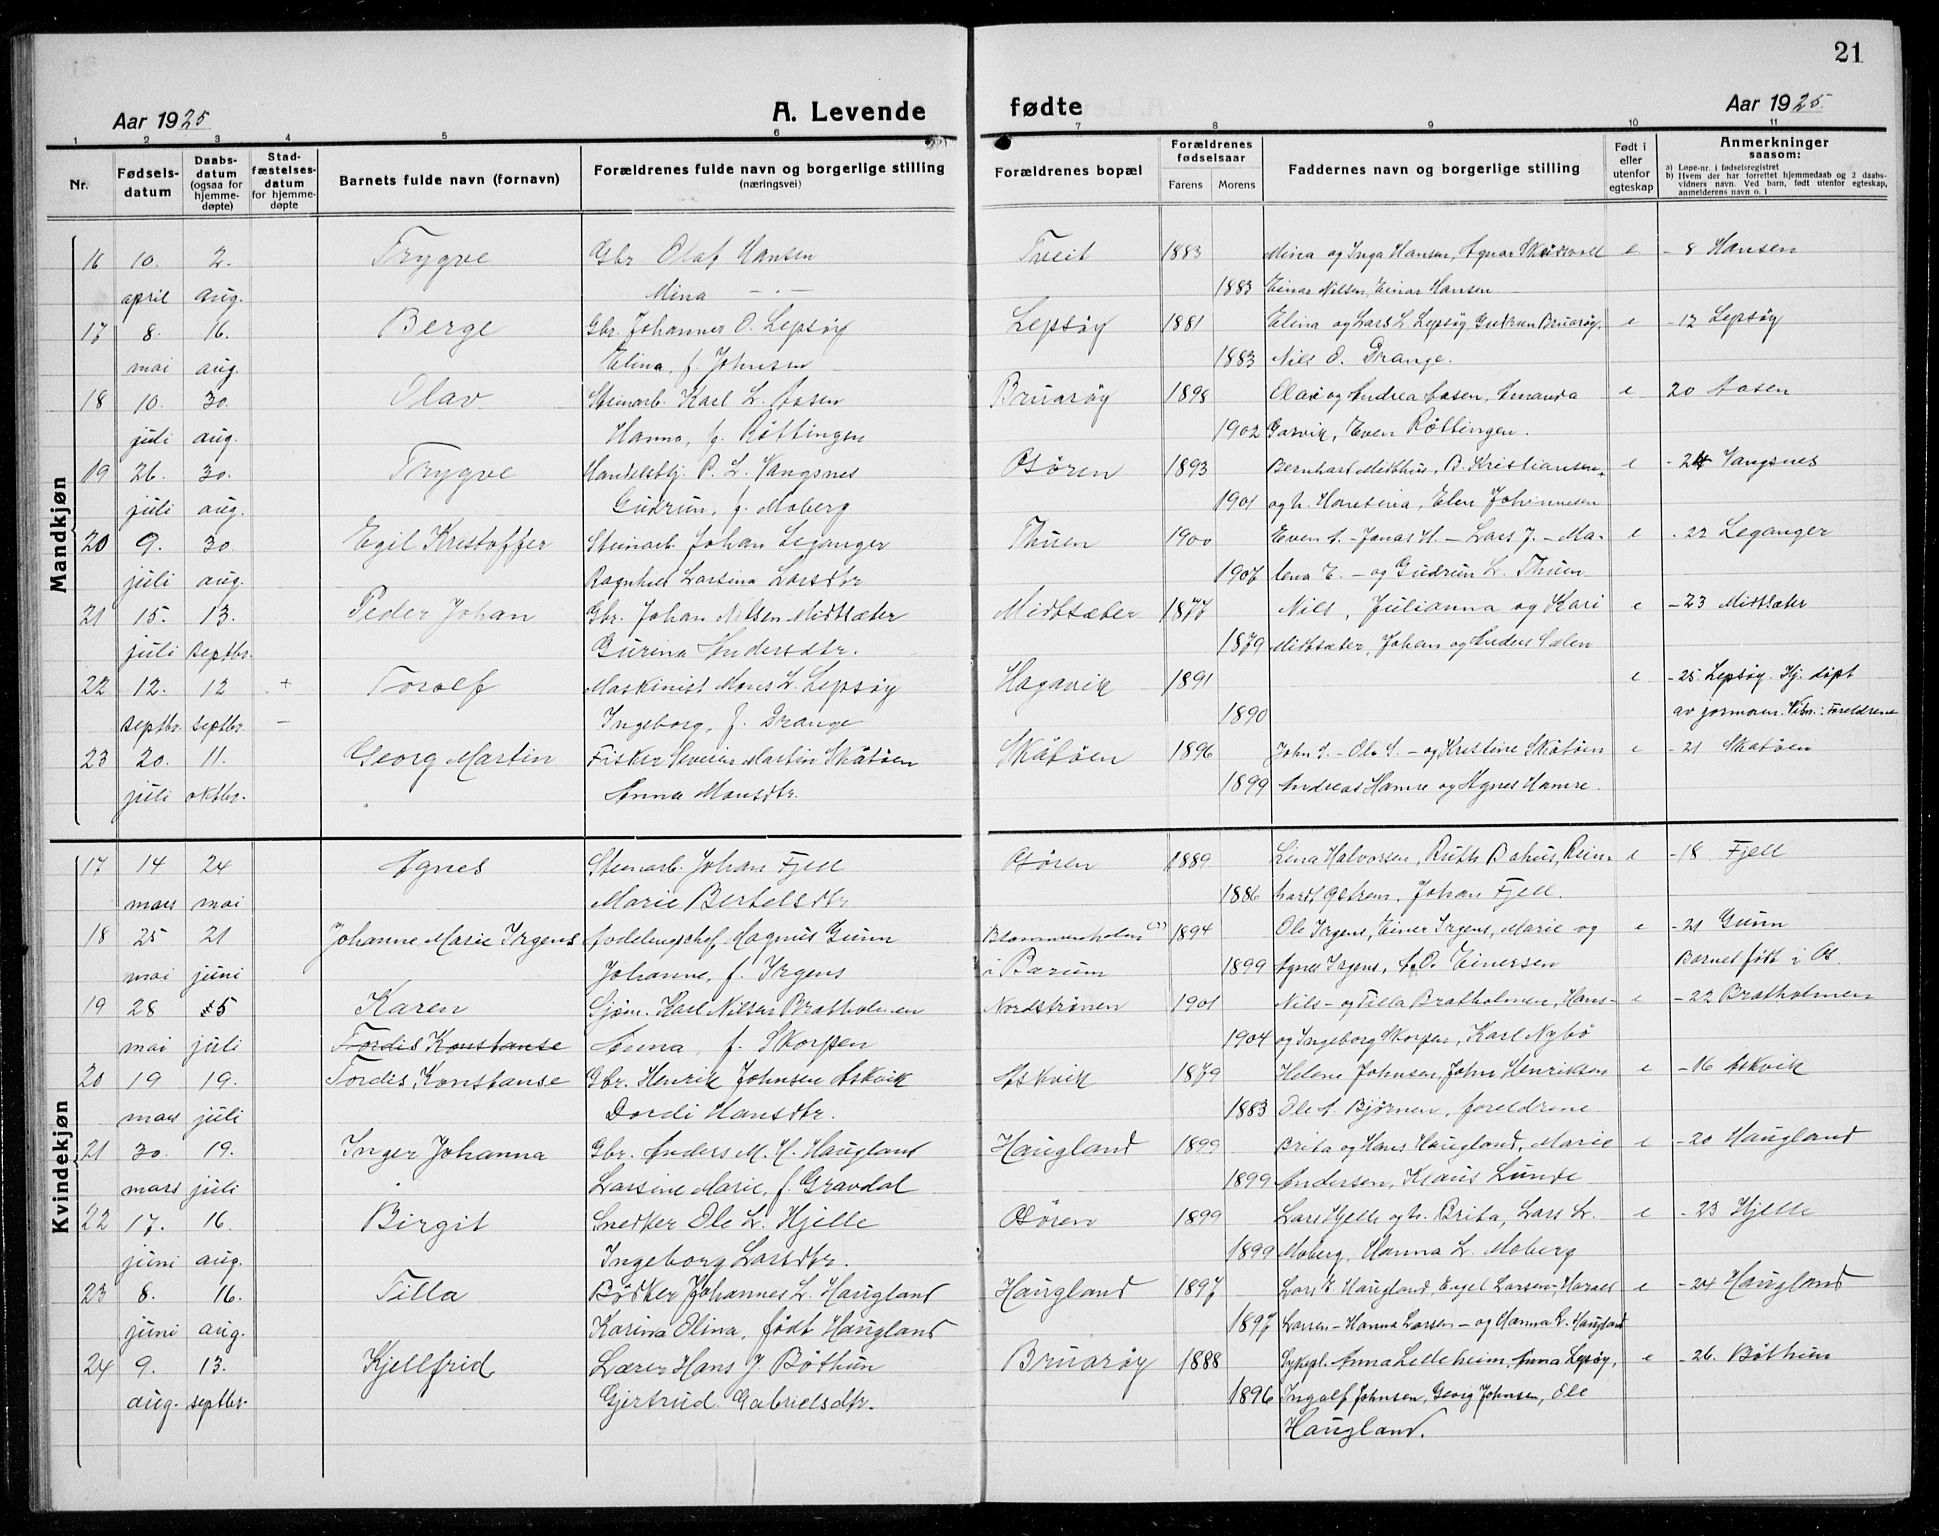 21
Aar 1925
A. Levende
fødte
Aar 1925
1 2 3 4 5 6 7 8 9 10 11
Nr.
Fødsels-
datum
Daabs-
datum
(ogsaa for
hjemme-
døpte)
Stad-
fæstelses-
datum
for hjemme-
døpte
Barnets fulde navn (fornavn)
Forældrenes fulde navn og borgerlige stilling
(næringsvei)
Forældrenes bopæl
Forældrenes
fødselsaar
Farens Morens
Faddernes navn og borgerlige stilling
Født i
eller
utenfor
egteskap
Anmerkninger
saasom:
a) Løpe-nr. i fødselsregistret
b) Hvem der har forrettet hjemmedaab og 2 daabs-
vidners navn. Ved barn, født utenfor egteskap,
anmelderens navn o. l
Mandkjøn
16 10. 2. Trygve Gbr Olaf Hansen Tveit 1883 Mina og Inga Hansen, Agnar e - 8 Hansen
april aug. Mina - - 1883 Einar Nilsen, Einar Hansen
17 8. 16. Berge Gbr. Johannes O. Lepsøy Lepsøy 1881 Elina og Lars L. Lepsøy, Gudrun Bruarøy, e - 12 Lepsøy
mai aug. Elina, f. Johnsen 1883 Nils O. Drange.
18 10. 30. Olav Steinarb. Karl L. Aasen Bruarøy 1898 Olai og Andrea Aasen, Amanda e 20 Aasen
juli aug. Hanna, f. Røttingen 1902 Gasvik, Even Røttingen.
19 26. 30. Trygve Handelsbtj. P. L. Vangsnes Osøren 1893 Bernhard Midthus, B. Kristiansen e - 24 Vangsnes
juli aug. Gudrun, f. Moberg 1901 og h. Hansina, Elen Johannesen
20 9. 30 Egil Kristoffer Steinarb. Johan Leganger Thuen 1900 Even A. - Jonas H. - Lars J. - Ma- e - 22 Leganger
juli aug. Ragnhild Larsina Larsdtr. 1907 lena E. - og Gudrun L. Thuen
21 15. 13. Peder Johan Gbr. Johan Nilsen Midtsæter Midtsæter 1877 Nils, Julianna og Kari e - 23 Midtsæter
juli septbr. Gurina Andersdtr. 1879 Midtsæter, Johan og Anders Sælen
22 12. 12 + Torolf Maskinist Mons L. Lepsøy Hagavik 1891 e - 25 Lepsøy. Hj. døpt
septbr. septbr. - Ingeborg, f. Drange 1890 av jormoren. Vitn.: Foreldrene
23 20. 11. Georg Martin Fisker Severin Martin Skåtøen Skåtøen 1896 John S. - Ole S. - og Kristine Skåtøen e - 21 Skåtøen
juli oktbr. Anna Monsdtr. 1899 Andreas Hamre og Agnes Hamre.
Kvindekjøn
17 14 24 Agnes Steinarb. Johan Fjell Osøren 1889 Lina Halvorsen, Ruth Bahus, Rein- e - 18 Fjell
mars mai Marie Bertelsdtr. 1886 hardt Østrem, Johan Fjell.
18 25 21 Johanne Marie Irgens Avdelingschef, Magnus Gunn Blommenholm 1894 Ole Irgens, Einer Irgens, Marie og e - 21 Gunn
mai juni Johanne, f. Irgens i Bærum 1899 Agnes Irgens, A.O. Einersen Barnet født i Os.
19 28 5 Karen Sjøm. Karl Nilsen Bratholmen Nordstrønen 1901 Nils - og Tilla Bratholmen, Hans- e - 22 Bratholmen
mai juli Tordis Konstanse Anna f. Skorpen 1904 og Ingeborg Skorpen, Karl Nybø
20 19 19. Tordis Konstanse Gbr. Henrik Johnsen Askvik Askvik 1879 Helene Johnsen, John Henriksen e - 16 Askvik
mars juli Dordi Hansdtr. 1883 Ole A. Bjørnen, foreldrene
21 30. 19. Inger Johanna Gbr. Anders M. H. Haugland Haugland 1899 Brita og Hans Haugland, Marie e - 20 Haugland
mars juli Larsine Marie, f. Gravdal 1899 Andersen, Klaus Lunde
22 17. 16. Birgit Snedker Ole L. Hjelle Osøren 1899 Lars Hjelle og h. Brita, Lars L. e - 23 Hjelle
juni aug. Ingeborg Larsdtr. 1899 Moberg, Hanna L. Moberg
23 8. 16. Tilla Bødker Johannes L. Haugland Haugland 1897 Lars E. Haugland, Engel Larsen - Harald e - 24 Haugland
juni aug. Karina Olina, født Haugland 1897 Larsen - Hanna Larsen - og Hanna L. Haugland
24 9. 13. Kjellfrid Lærer Hans J. Bøthun Bruarøy 1888 Sykepl. Anna Ledeheim, Anna Lepsøy, e - 26. Bøthun
aug. septbr. Gjertrud Gabrielsdtr. 1896 Ingolf Johnsen, Georg Johnsen, Ole
Haugland.